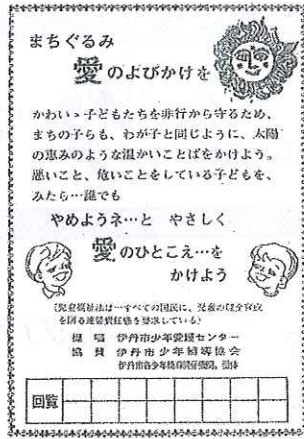 まちぐるみ
愛のよびかけを
かわいゝ子どもたちを非行から守るため、
まちの子らも、わが子と同じように、太陽
の恵みのような温かいことばをかけよう。
悪いこと、危いことをしている子どもを、
みたら…誰でも
やめようネ…と やさしく
愛のひとこえ…を
かけよう
(児童福祉法は…すべての国民に、児童の健全育成
を図る連帯責任感を要求している)
提唱 伊丹市少年愛護センター
協賛 伊丹市少年補導協会
回覧